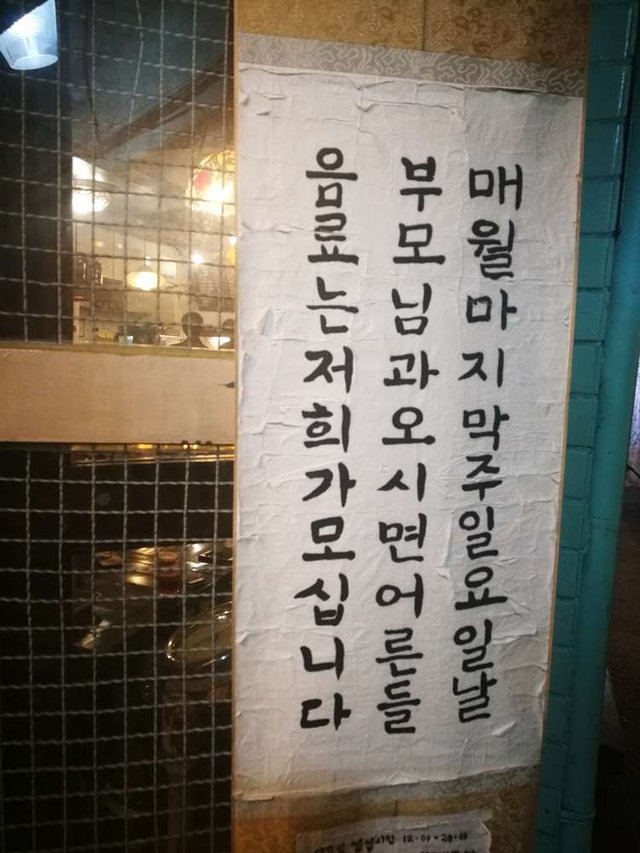 매월마지막주일요일날
부모님과오시면어른들
음료는저희가모십니다
영업시간 12:00 - 20:00